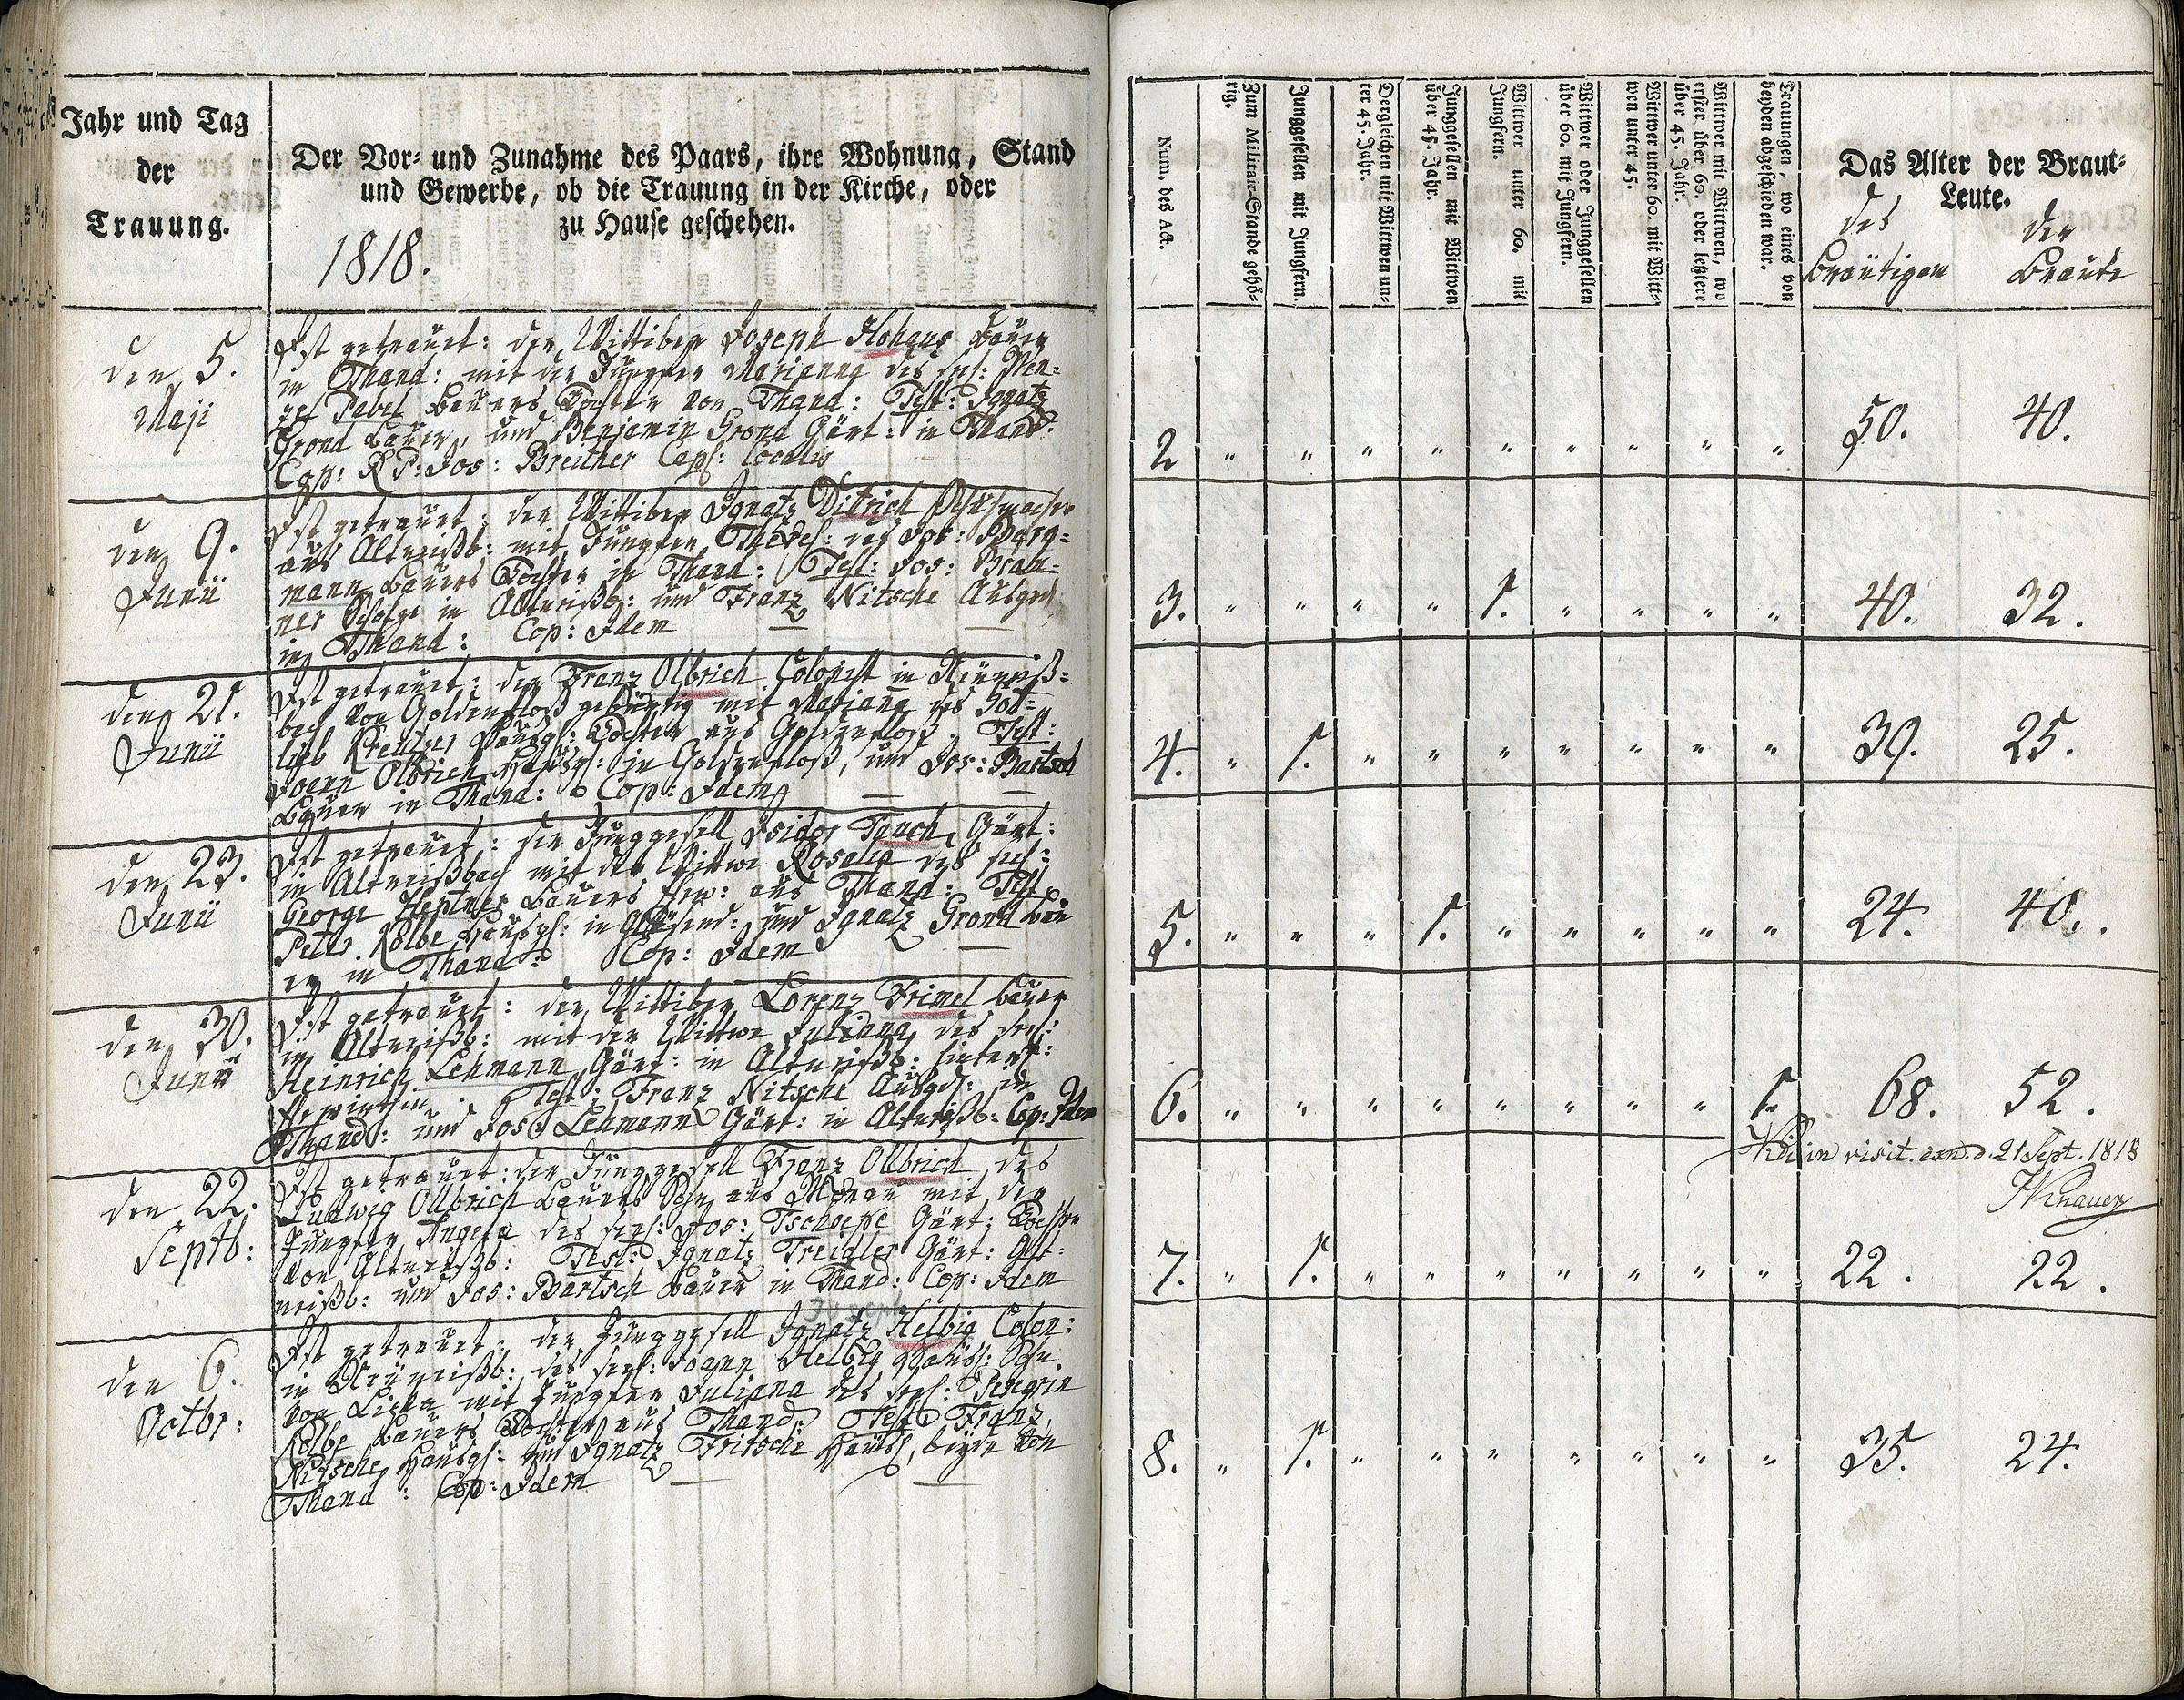 Jahr und Tag
der
Trauung.
Der Vor- und Zunahme des Paars, ihre Wohnung, Stand
und Gewerbe, ob die Trauung in der Kirche, oder
zu Hause geschehen.
1818.
den 5.
Maji
Ist getrauet: der Wittiber Joseph Bauer
in Thand: mit der Jungfer Marianna des seel: Wen-
zel Pabel Bauers Tochter von Thand: Test: Ignatz
Grond Bauer, und Benjamin Grond Gärt: in Thand:
Cop: R P: Jos: Breither Capl: localis
den 9.
Junii
Ist getrauet: der Wittiber Ignatz Ditrich
aus Altweißb: mit Jungfer Theres: des Jos: Berg-
mann Bauers Tochter in Thand: Test: Jos: Bran-
ner Scholze in Altweißb: und Franz Nitsche Ausged
in Thand: Cop: Idem
den 21.
Junii
Ist getrauet: der Franz Olbrich Colonist in Neuweiß-
bach von Goldenfloß gebürtig mit Mariana des Got-
lieb Kreutzer Hausgl: Tochter aus Goldenfloß. Test:
Joann Olbrich Hausgl: in Goldenfloß, und Jos: Bartsch
Bauer in Thand: Cop: Idem
den 23.
Junii
Ist getrauet: der Junggesell Isidor Tauch, Gärt:
in Altweißbach mit der Wittwe Rosalia des seel:
George Heptner Bauers Ehew: aus Thand: Test
Peter Kolbe Hausgl: in und Ignatz Grond Bau
er in Thand: Cop: Idem
den 30.
Junii
Ist getrauet: der Wittiber Lorenz Frimel Bauer
in Altweißb: mit der Wittwe Juliana des seel:
Heinrich Lehmann Gärt: in Altweißb: hinterl:
Test: Franz Nitsche Ausged: in
Thand: und Jos: Lehmann Gärt: in Altweißb: Cop: Idem
den 22.
Septb:
Ist getrauet: der Junggesell Franz Olbrich, des
Ludwig Olbrich Bauers Sohn aus Morau mit der
Jungfer Angela des seel: Jos: Tschoepe Gärt: Tochter
von Altweißb: Test: Ignatz Treigler Gärt: Alt-
weißb: und Jos: Bartsch Bauer in Thand: Cop: Idem
den 6.
Octbr:
Ist getrauet: der Junggesell Ignatz Helbig Colon:
in Neuweißb: des seel: Joann Helbig Hausl: Sohn
von mit Jungfer Juliana des seel: Peregrin
Kolbe Bauers Tochter aus Thand: Test: Franz
Nitsche Hausgl: und Ignatz Fritsche Hausl, beyde von
Thand: Cop: Idem
Num. des Act.
Zum Militair-Stande gehö-
rig.
Junggesellen mit Jungfern.
Dergleichen mit Wittwen un-
ter 45. Jahr.
Junggesellen mit Wittwen
über 45. Jahr.
Wittwer unter 60. mit
Jungfern.
Wittwer oder Junggesellen
über 60. mit Jungfern.
Wittwer unter 60. mit Witt-
wen unter 45.
Wittwer mit Wittwen, wo
erster über 60. oder letztere
über 45. Jahr.
Trauungen, wo eines von
beyden abgeschieden war.
Das Alter der Braut-
Leute.
des
Bräutigam
der
Braut
2 " " " " " " " " " 50. 40.
3. " " " " 1. " " " " 40. 32.
4. " 1. " " " " " " " 39. 25.
5. " " " 1. " " " " " 24. 40.
6. " " " " " " " " 1. 68. 52.
in visit. can. d. 21 Sept. 1818
7. " 1. " " " " " " " 22. 22.
8. " 1. " " " " " " " 35. 24.